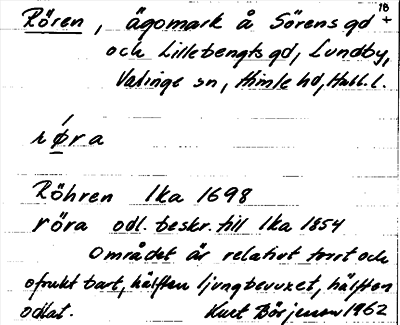 Rören, ägomark å Sörens gd 18 +
och Lillebengts gd, Lundby,
Valinge sn, Himle hd, Hall. l.
rǿra
Röhren lka 1698
röra odl. beskr. till lka 1854
Området är relativt torrt och
ofruktbart, hälften ljungbevuxet, hälften
odlat. Kurt Börjesson 1962